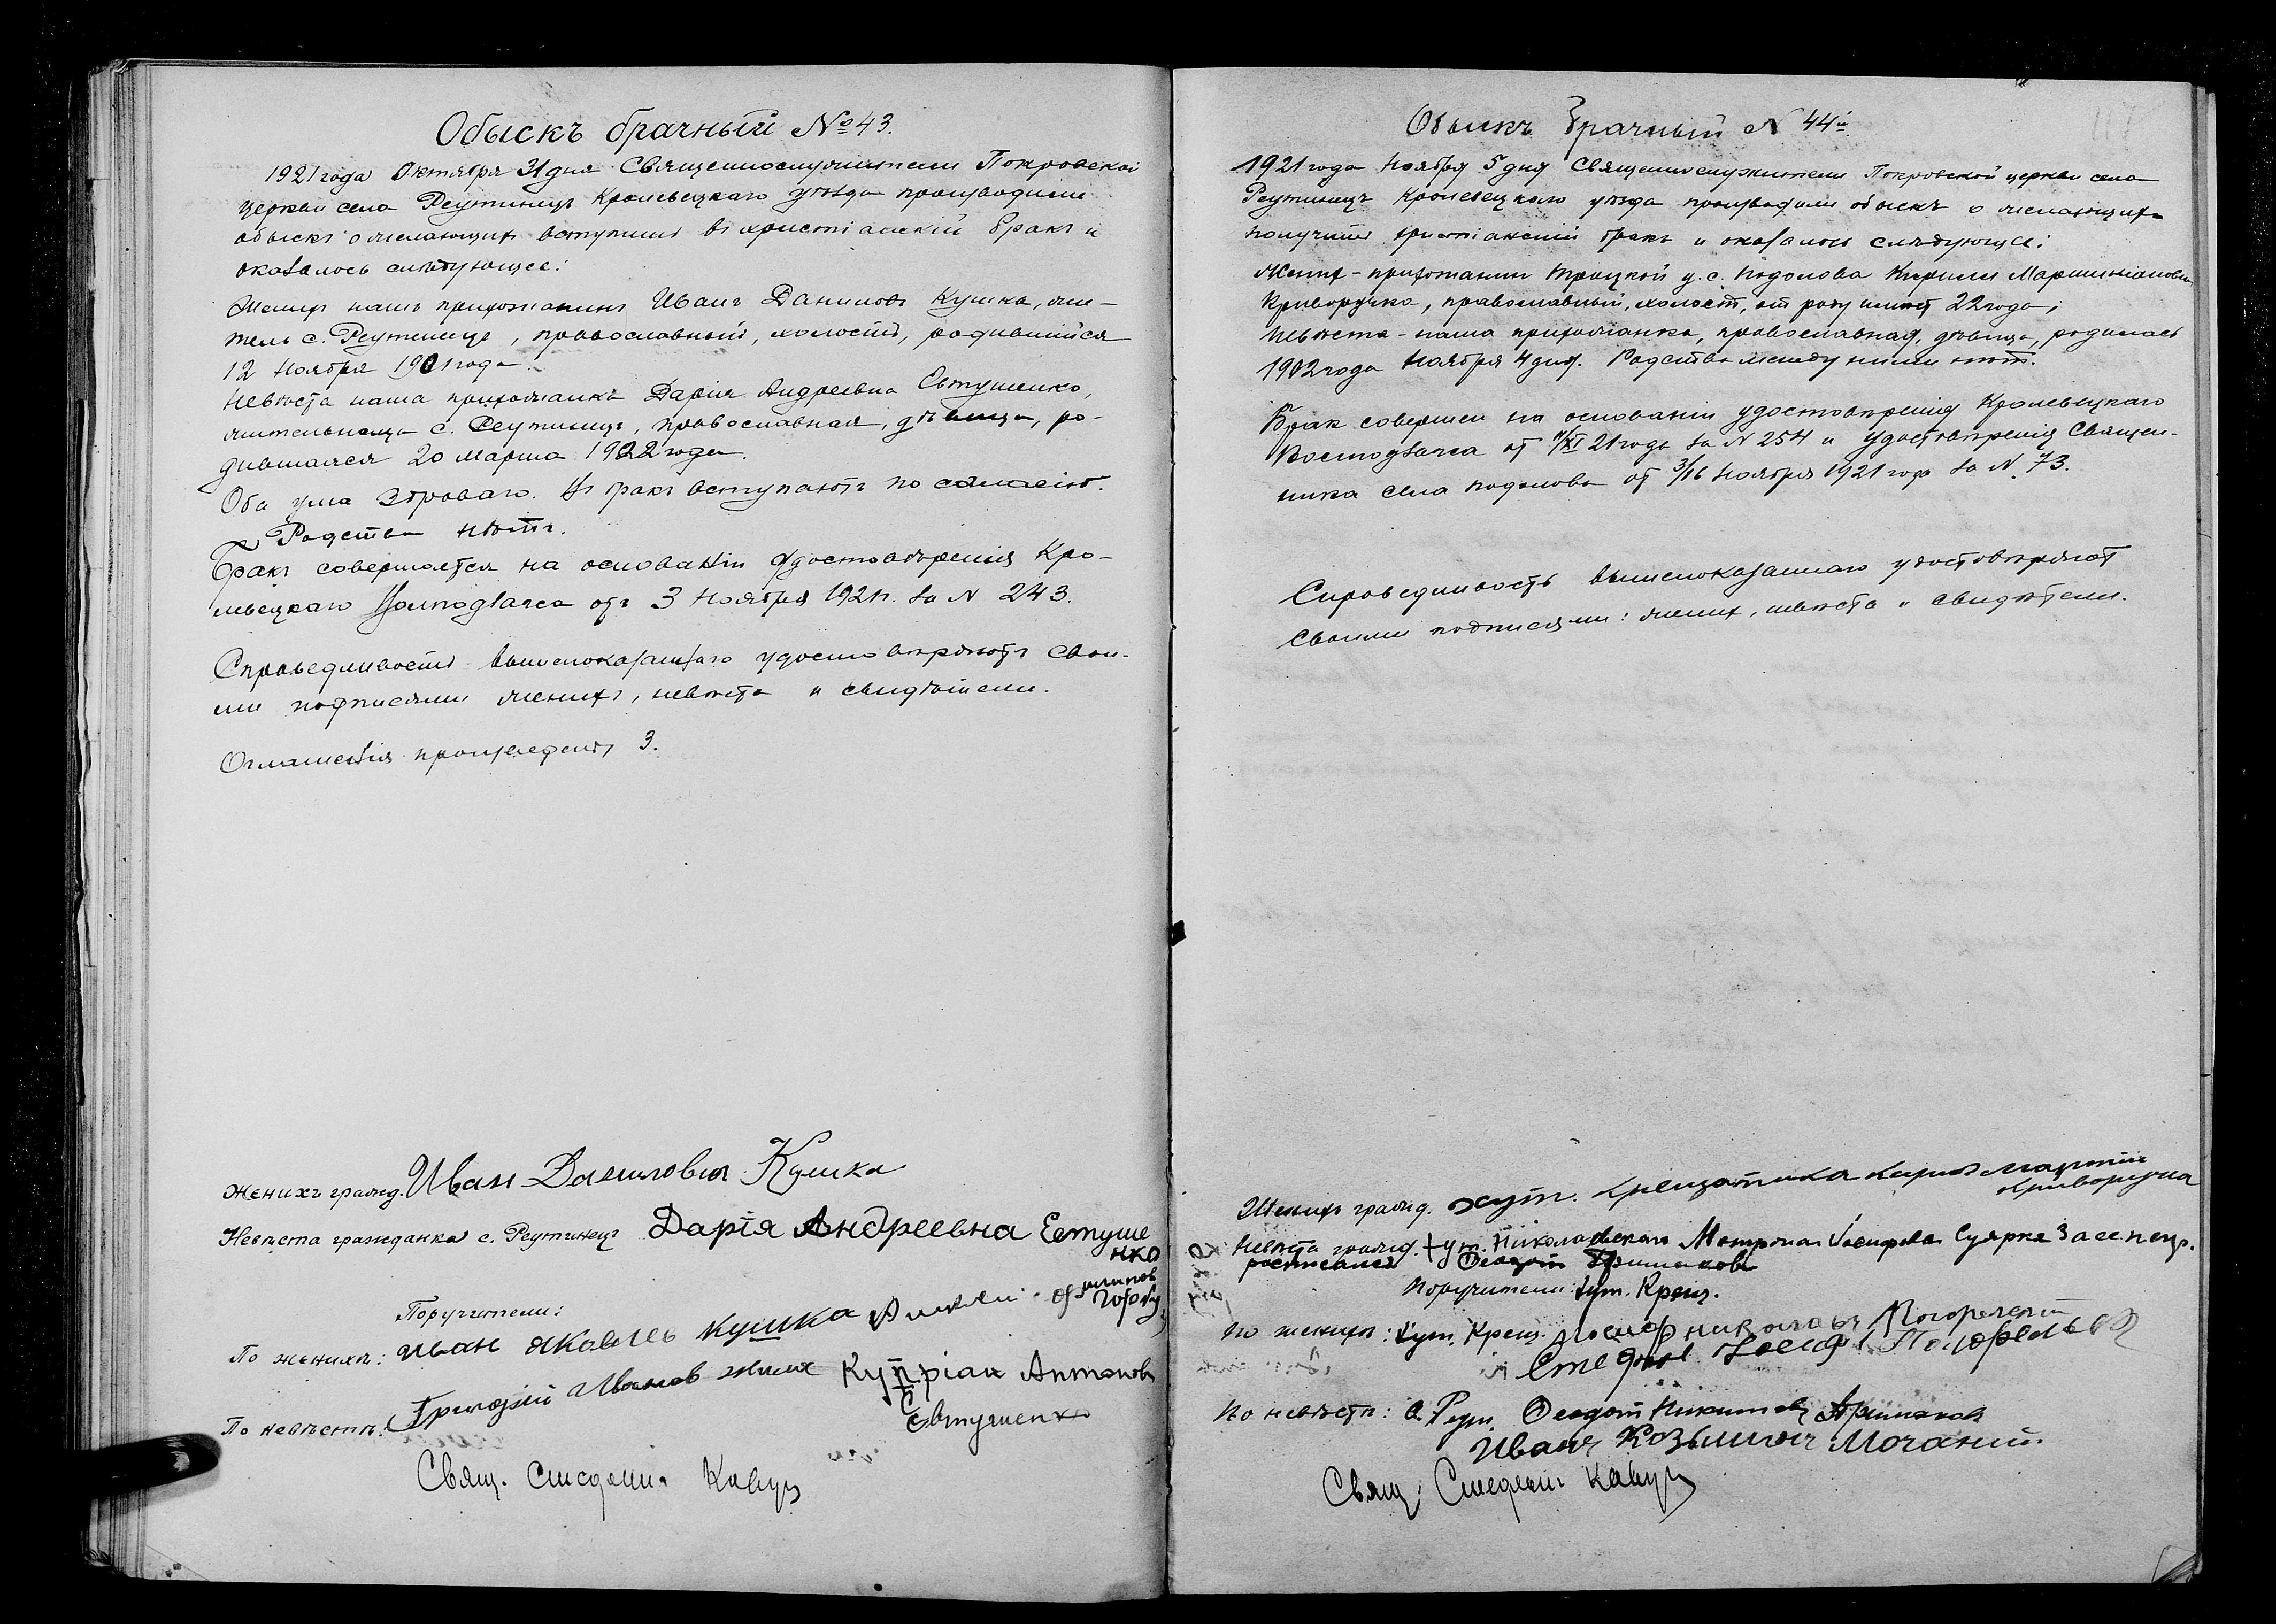 Обыскъ брачный № 43.
1921 года Октября 31 дня Священнослужители Покровской
церкви села Реутинецъ Кролевецкаго уѣзда производили
обыскъ о желающихъ вступить въ христіанскій бракъ и
оказалось слѣдующее:
Женихъ нашъ прихожанинъ Иванъ Даниловъ Кушка, жи-
тель с. Реутинецъ, православный, холостъ, родившійся
12 Ноября 1901 года.
Невѣста наша прихожанка Дарія Андреевна Евтушенко,
жительница с. Реутинецъ, православная, дѣвица, ро-
дившаяся 20 Марта 1922 года.
Оба ума здраваго. Въ бракъ вступаютъ по согласію.
Родства нѣтъ.
Бракъ совершается на основаніи удостовѣренія Кро-
левецкаго отъ 3 Ноября 1921 г. за N 243.
Справедливость вышепоказаннаго удостовѣряютъ свои-
ми подписями женихъ, невѣста и свидѣтели.
Оглашенія произведены 3.
Женихъ гражд. Иван Данилович Кушка
Невѣста гражданка с. Реутинецъ Дарія Андреевна Евтуше
нко
Поручители:
По женихѣ: Иван Яковлевъ Кушка
По невѣстѣ: Григорій Иванов Купріан Антонов
Евтушенко
Свящ. Стефанъ Кавун
Обыскъ Брачный N 44й
1921 года Ноября 5 дня Священнослужители Покровской церкви села
Реутинецъ Кролевецкаго уѣзда производили обыскъ о желающихъ
получить христіанскій бракъ и оказалось слѣдующее:
Женихъ - прихожанин Троицкой ц. с. Подолова Кирилл
Криворучко, православный, холост, от роду имѣет 22 года;
Невѣста - наша прихожанка, православная, дѣвица, родилась
1902 года Ноября 4 дня. Родства между ними нѣт.
Брак совершен на основаніи удостовѣренія Кролевецкаго
от XI 21 года за N 254 и удостовѣренія Священ-
ника села Подолова от 3/16 Ноября 1921 года за N 73.
Справедливость вышепоказаннаго удостовѣряют
своими подписями: жених, невѣста и свидѣтели.
Женихъ гражд. хут. Крещатика
Криворучка
Невѣста гражд. хут. Николаевскаго Матрона Іосифова Суярко За ее негр.
Феодот Примаков
Поручители хут. Крещ.
По женихѣ: Хут. Крещ. Іосиф
Стефан
По невѣстѣ: с. Реут. Феодот Никитов Примаков
Иванъ Козьмичъ
Свящ. Стефанъ Кавун